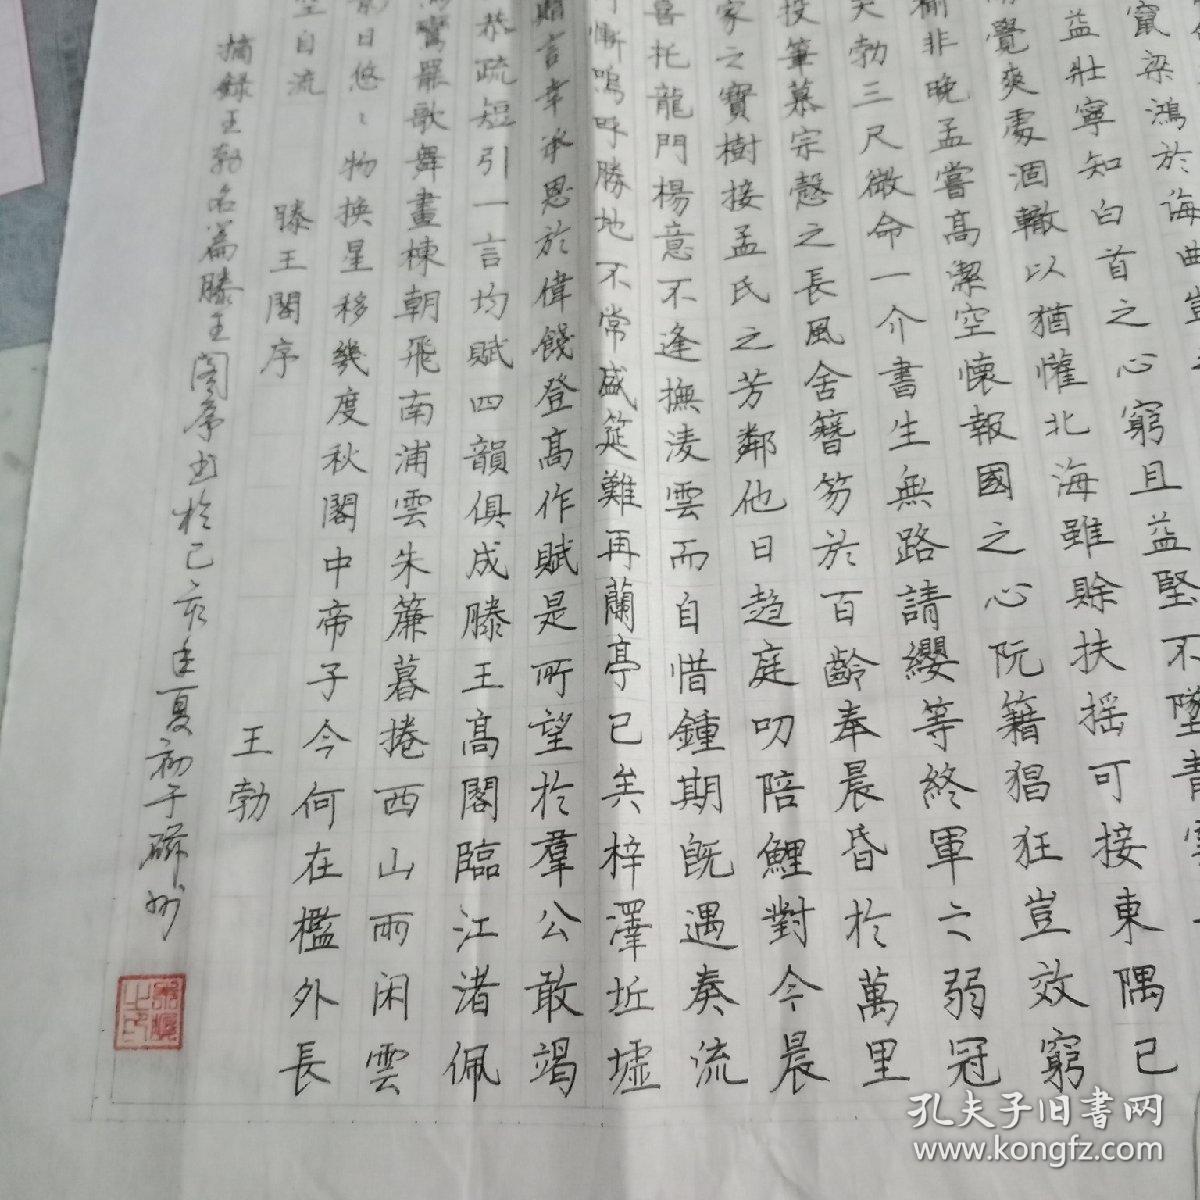 竄梁鴻於海曲豈
益壯寧知白首之心窮且益堅不墜青雲
覺爽處涸轍以猶懽北海雖賒扶摇可接東隅已
非晚孟嘗高潔空懷報國之心阮籍猖狂豈效窮
勃三尺微命一介書生無路請纓等終軍之弱冠
投筆慕宗慤之長風舍簪笏於百齡奉晨昏於萬里
家之寶樹接孟氏之芳鄰他日趋庭叨陪鯉對今晨
喜托龍門楊意不逢撫淩雲而自惜鍾期既遇奏流
慚嗚呼勝地不常盛筵難再蘭亭已矣梓澤坵墟
贈言幸承恩於偉餞登高作賦是所望於羣公敢竭
恭疏短引一言均賦四韻俱成滕王高閣臨江渚佩
鸞罷歌舞畫棟朝飛南浦雲朱簾暮捲西山雨闲雲
影日悠〻物换星移幾度秋閣中帝子今何在檻外長
空自流
滕王閣序 王勃
摘錄王勃名篇滕王阁序书於己亥年夏初于
孔夫子旧书网
www.kongfz.com